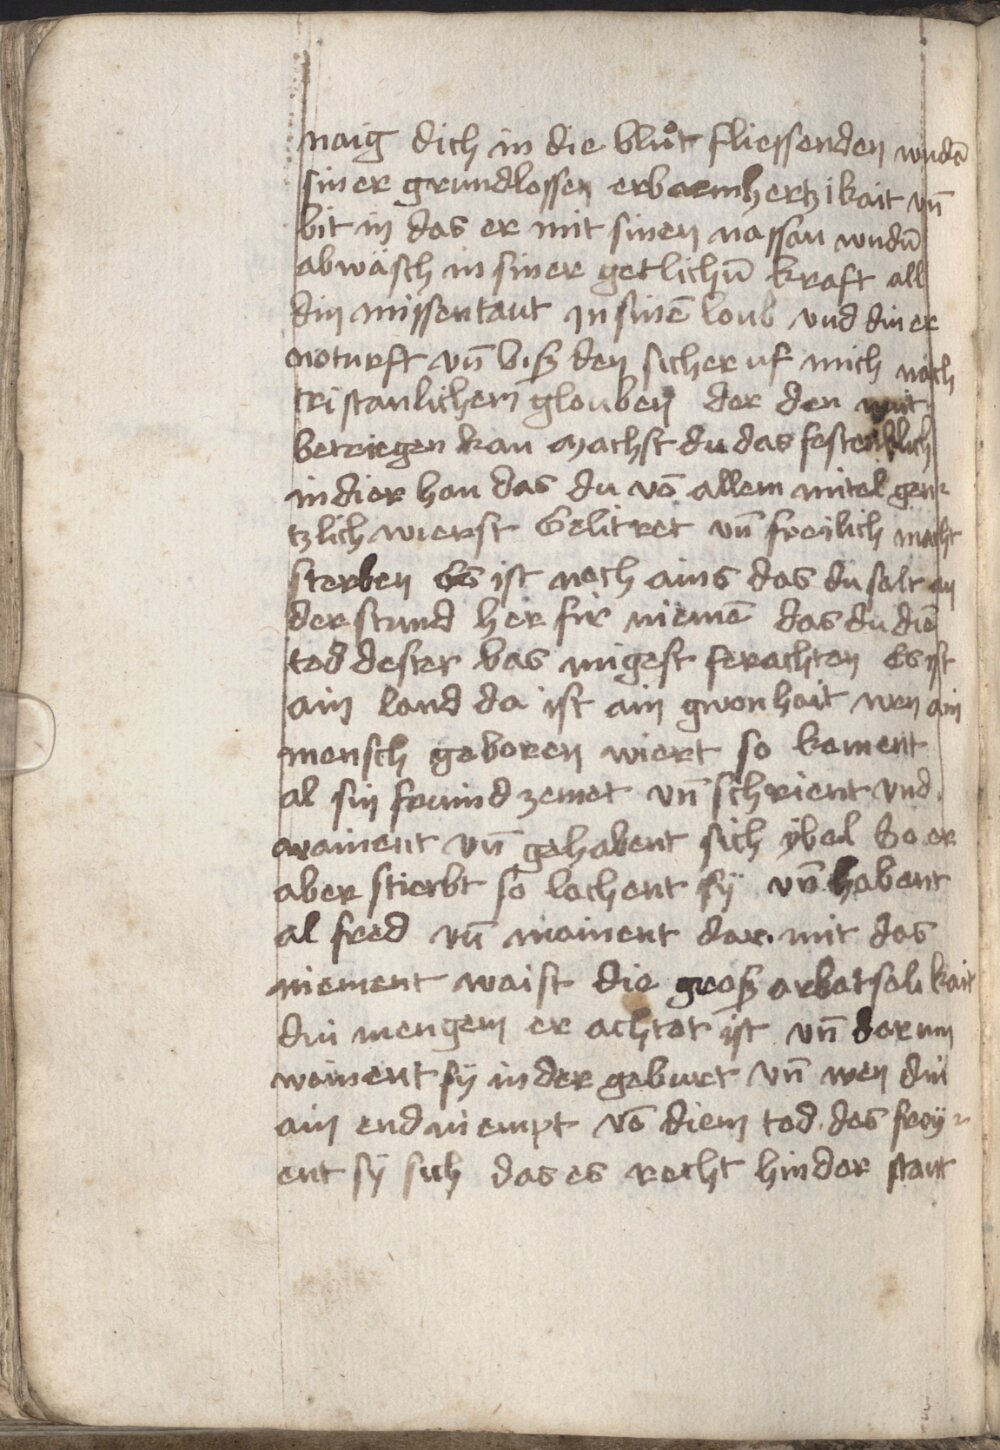 naig dich in die bluͦt fliessenden wndē
siner grundlossen erbarmhertzikait vn̄
bit in das er mit sinen nassan wndn̄
abwäsch in siner getlichn̄ kraft all
din missentaut in sinē loub vnd diner
noturft vn̄ biß den sicher uf mich nach
cristanlichem glouben der den nit
betriegen kan machst du das festenklich
in dier han das du vō allem mitel gen-
tzlich wierst Gelitret vn̄ freilich macht
sterben Es ist noch ains das du solt an
der stund her fir niemē das du diē
tod dester bas migest ferachten Es ist
ain land da ist ain gwonhait wen ain
mensch geboren wiert so koment
al sin fruind zemet vn̄ schrient vnd
wainent vn̄ gehabent sich ÿbel So er
aber stierbt so lachent sÿ vn̄ habent
al fred vn̄ mainent dar mit das
niement waist die groß arbatsalikait
dui mengem er achtet ist vn̄ dorum
weinent sÿ in der geburt vn̄ wen dui
ain end niempt vō diem tod des froÿ-
ent sÿ sich das es recht hinder staut